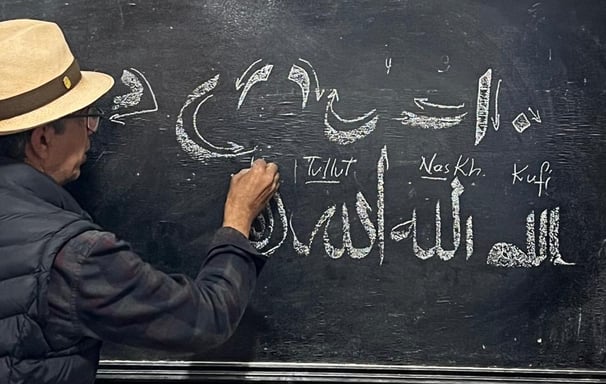 Tullut Naskh. Kufi
الله الله الله